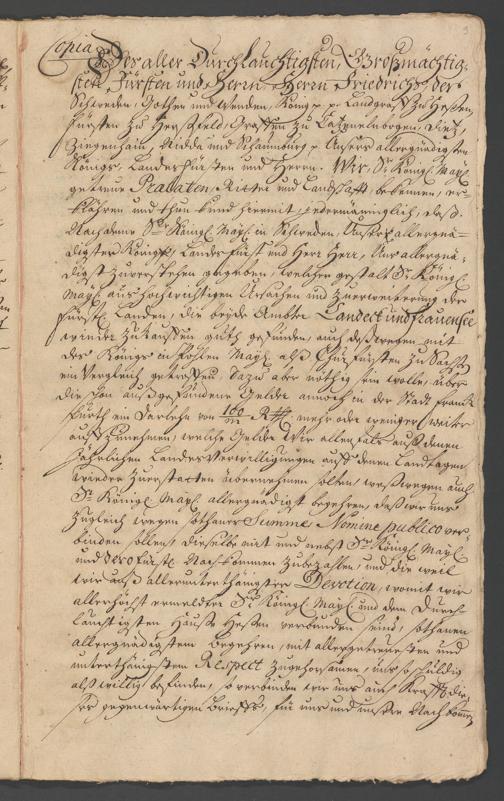 Copia
3
Des aller Durchlauchtigsten, Großmächtig-
sten Fürsten und Herrn Herrn Friedrichs der
Schweden, Gothen und Wenden König p. p. Landgraff zu Hessen,
Fürsten zu Herßfeld, Graffen zu Catzenelnbogen, Dietz,
Ziegenhain, Nidda und Schaumburg p. Unsers allergnädigsten
Königs, Landes Fürsten und Herrn. Wir, Sr Königl. Mayl.
getreue Praelaten, Ritter und Landschafft bekennen, er-
klähren und thun kund hiermit jedermänniglich, daß
Nachdeme Sr Königl. Mayl. in Schweden, Unser allergnä-
digster König, Landes Fürst und Herr Herr, Uns allergnä-
digst zuverstehen gegeben, welcher gestalt Sr Königl.
Mayl. aus hochwichtigen Ursachen und zu erweiterung der
Fürstl. Landen, die beyde Ambter Landeck und Frauensee
wieder zukauffen guth gefunden, auch deßwegen mit
des Königs in Pohlen Mayl. alß Churfürsten zu Sachßen
ein Vergleich getroffen. Dazu aber nöthig sein wolle, über
die schon außgefundene Gelder annoch in der Stadt Franck-
furth ein Darlehn von 160/m Rthlr. mehr oder weniger
auffzunehmen, welche Gelder Wir allenfals auß denen
Jährlichen Landes Verwilligungen auff denen Landtagen
wieder zuerstatten übernehmen solten, weßwegen auch
Sr Königl. Mayl. allergnädigst begehren, daß wir uns
zugleich wegen sothaner Summe Nomine publico ver-
binden sollen, dieselbe mit und nebst Sr Königl. Mayl.
und Dero Fürstl. Nachkommen zubezahlen, und die weil
wir auß allerunterthänigster Devotion, womit wir
allerhöchst ermeldter Sr Königl. Mayl. und dem Durch-
lauchtigsten Hauße Hessen verbunden seind, sothanen
allergnädigstem Begehren, mit allergetreuesten und
unterthänigstem Respect zugehorsamen, uns so schuldig
alß willig befinden, so verbinden wir uns auch krafft die-
ses gegenwärtigen Brieffs, für uns und unsere Nachkommen